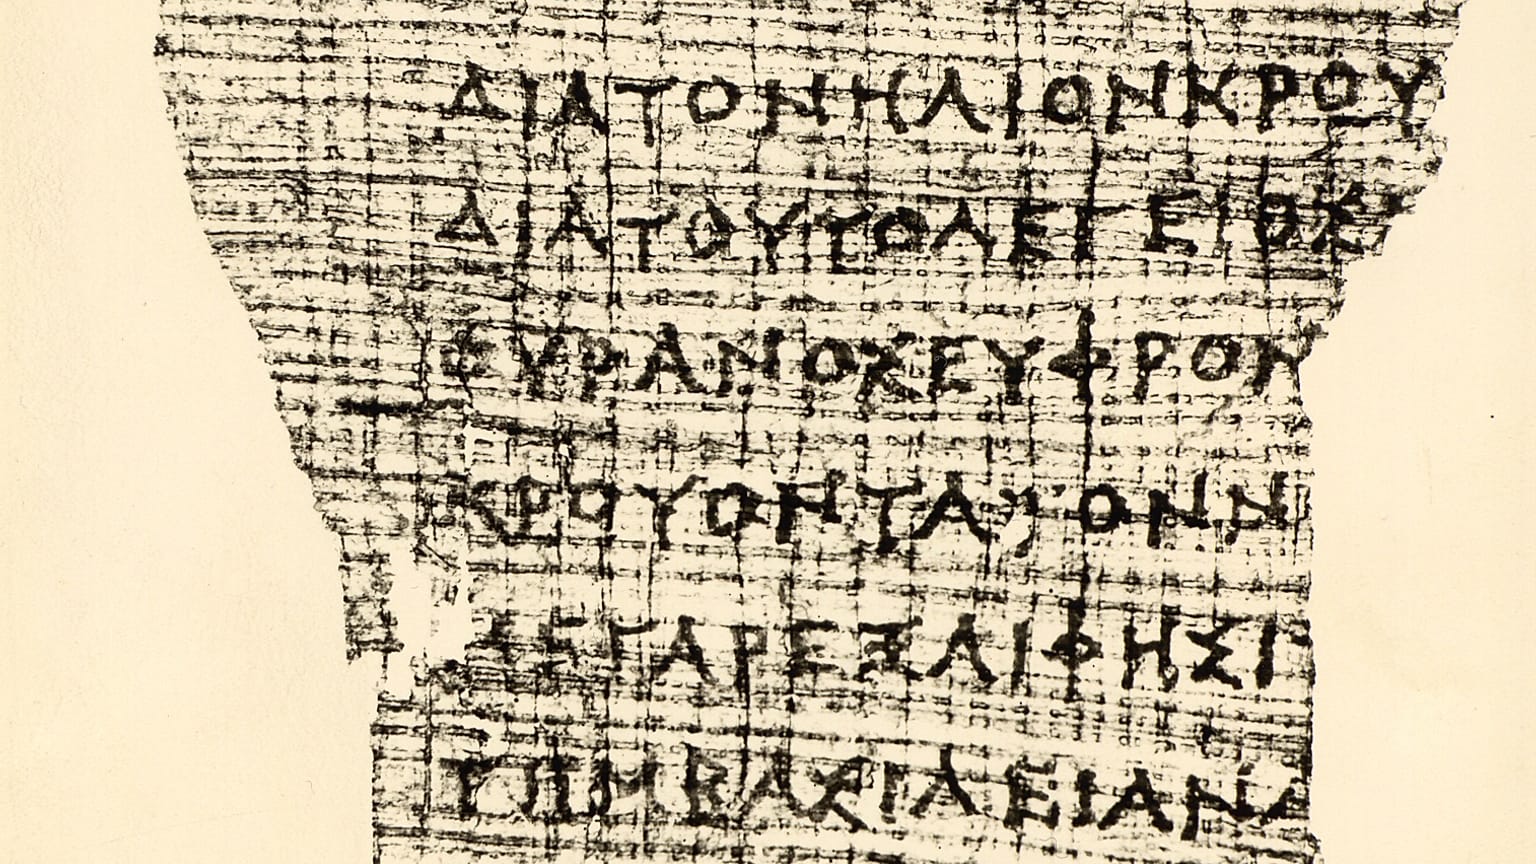 ΔΙΑΤΟΝΗΛΙΟΝΚΡΟΥ
ΔΙΑΤΟΥΤΟΛΕΓΕΙΟΣ
ΟΥΡΑΝΟΣΕΥΦΡΟΝ
ΚΡΟΥΟΝΤΑΤΟΝΝ
ΕΓΑΡΕΞΑΙΦΗΣΙ
ΤΗΜΒΑΣΙΛΕΙΑΝΑ